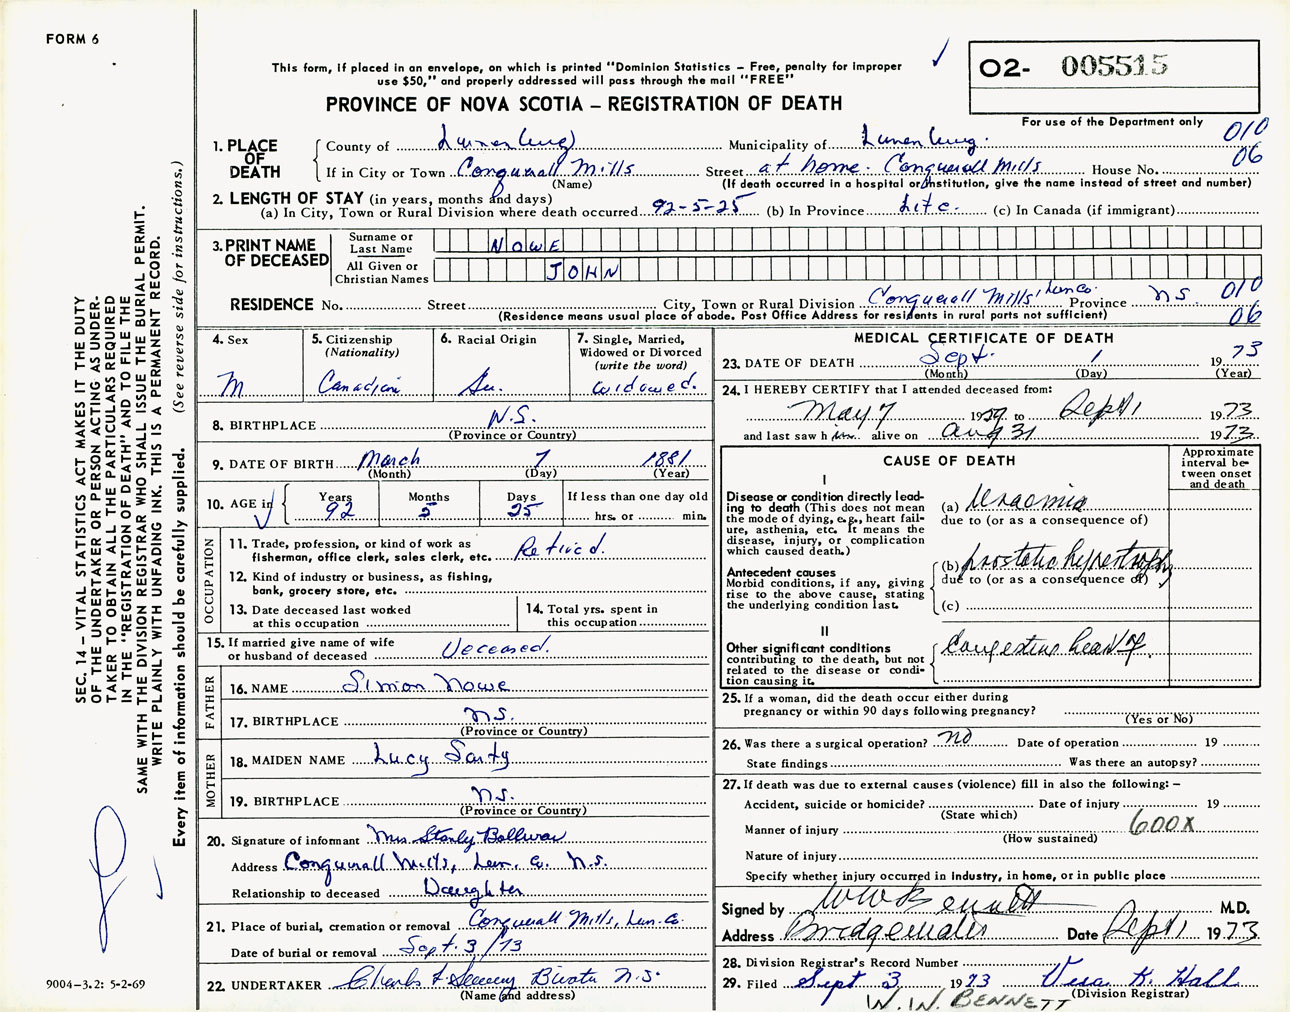 FORM 6
This form, if placed in an envelope, on which is printed "Dominion Statistics – Free, penalty for improper
use $50," and properly addressed will pass through the mail "FREE"
PROVINCE OF NOVA SCOTIA – REGISTRATION OF DEATH
O2- 005515
For use of the Department only
010
06
1. PLACE OF DEATH
County of Lunenburg Municipality of Lunenburg.
If in City or Town Conquerall Mills Street at home. Conquerall Mills House No.
(Name) (If death occurred in a hospital or institution, give the name instead of street and number)
2. LENGTH OF STAY (in years, months and days)
(a) In City, Town or Rural Division where death occurred 92-5-25 (b) In Province Life. (c) In Canada (if immigrant)
3. PRINT NAME OF DECEASED
Surname or Last Name NOWE
All Given or Christian Names JOHN
RESIDENCE No. Street City, Town or Rural Division Conquerall Mills, Lun Co. Province N.S. 010
(Residence means usual place of abode. Post Office Address for residents in rural parts not sufficient) 06
4. Sex M
5. Citizenship (Nationality) Canadian
6. Racial Origin
7. Single, Married, Widowed or Divorced (write the word) widowed.
8. BIRTHPLACE N.S.
(Province or Country)
9. DATE OF BIRTH March 7 1881
(Month) (Day) (Year)
10. AGE in Years 92 Months 5 Days 25 If less than one day old hrs. or min.
OCCUPATION
11. Trade, profession, or kind of work as fisherman, office clerk, sales clerk, etc. Retired.
12. Kind of industry or business, as fishing, bank, grocery store, etc.
13. Date deceased last worked at this occupation
14. Total yrs. spent in this occupation
15. If married give name of wife or husband of deceased Deceased.
FATHER
16. NAME Simon Nowe
17. BIRTHPLACE N.S.
(Province or Country)
MOTHER
18. MAIDEN NAME Lucy Sarty
19. BIRTHPLACE N.S.
(Province or Country)
20. Signature of informant Mrs Stanly
Address Conquerall Mills, Lun. Co. N.S.
Relationship to deceased Daughter
21. Place of burial, cremation or removal Conquerall Mills, Lun. Co.
Date of burial or removal Sept. 3/73
22. UNDERTAKER N.S.
(Name and address)
MEDICAL CERTIFICATE OF DEATH
23. DATE OF DEATH Sept. 1 1973
(Month) (Day) (Year)
24. I HEREBY CERTIFY that I attended deceased from:
May 7 19 to Sept 1 1973
and last saw him alive on Aug 31 1973
CAUSE OF DEATH
Approximate interval between onset and death
I
Disease or condition directly leading to death (This does not mean the mode of dying, e.g., heart failure, asthenia, etc. It means the disease, injury, or complication which caused death.)
(a) Uraemia
due to (or as a consequence of)
Antecedent causes
Morbid conditions, if any, giving rise to the above cause, stating the underlying condition last.
(b) prostatic hypertrophy
due to (or as a consequence of)
(c)
II
Other significant conditions contributing to the death, but not related to the disease or condition causing it.
Congestive heart f.
25. If a woman, did the death occur either during pregnancy or within 90 days following pregnancy?
(Yes or No)
26. Was there a surgical operation? no Date of operation 19
State findings Was there an autopsy?
27. If death was due to external causes (violence) fill in also the following: –
Accident, suicide or homicide? Date of injury 19
(State which)
Manner of injury 600X
(How sustained)
Nature of injury
Specify whether injury occurred in industry, in home, or in public place
Signed by WW Bennett M.D.
Address Bridgewater Date Sept 1 1973
28. Division Registrar's Record Number
29. Filed Sept 3 1973 K. Hall
(Division Registrar)
W.W. BENNETT
SEC. 14 – VITAL STATISTICS ACT MAKES IT THE DUTY
OF THE UNDERTAKER OR PERSON ACTING AS UNDER-
TAKER TO OBTAIN ALL THE PARTICULARS REQUIRED
IN THE "REGISTRATION OF DEATH" AND TO FILE THE
SAME WITH THE DIVISION REGISTRAR WHO SHALL ISSUE THE BURIAL PERMIT.
WRITE PLAINLY WITH UNFADING INK. THIS IS A PERMANENT RECORD.
Every item of information should be carefully supplied. (See reverse side for instructions.)
9004-3.2: 5-2-69